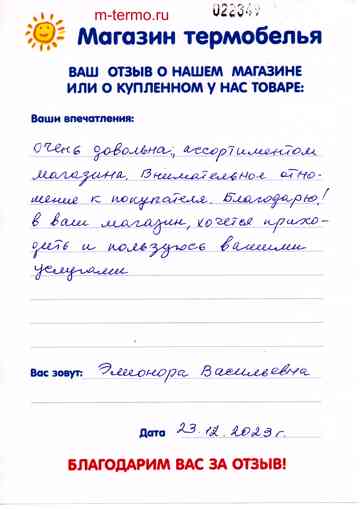 m-termo.ru
022349
Магазин термобелья
ВАШ ОТЗЫВ О НАШЕМ МАГАЗИНЕ
ИЛИ О КУПЛЕННОМ У НАС ТОВАРЕ:
Ваши впечатления:
очень довольна, ассортиментом
магазина. Внимательное отно-
шение к покупателя. Благодарю!
в ваш магазин, хочется прихо-
дить и пользуюсь вашими
услугами
Вас зовут: Элеонора Васильевна
Дата 23.12.2023г.
БЛАГОДАРИМ ВАС ЗА ОТЗЫВ!